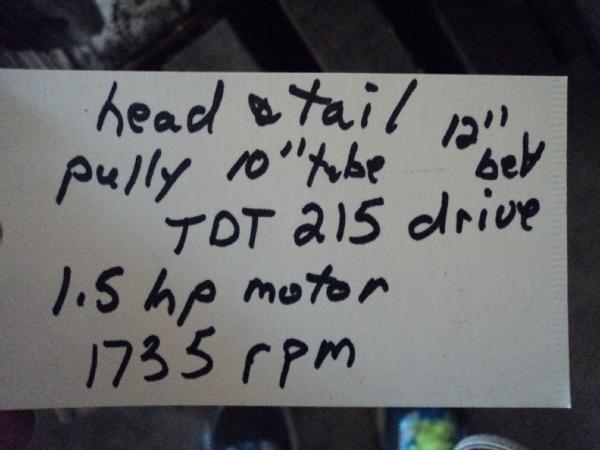 head & tail 12"
pully 10" tube belt
TDT 215 drive
1.5 hp motor
1735 rpm